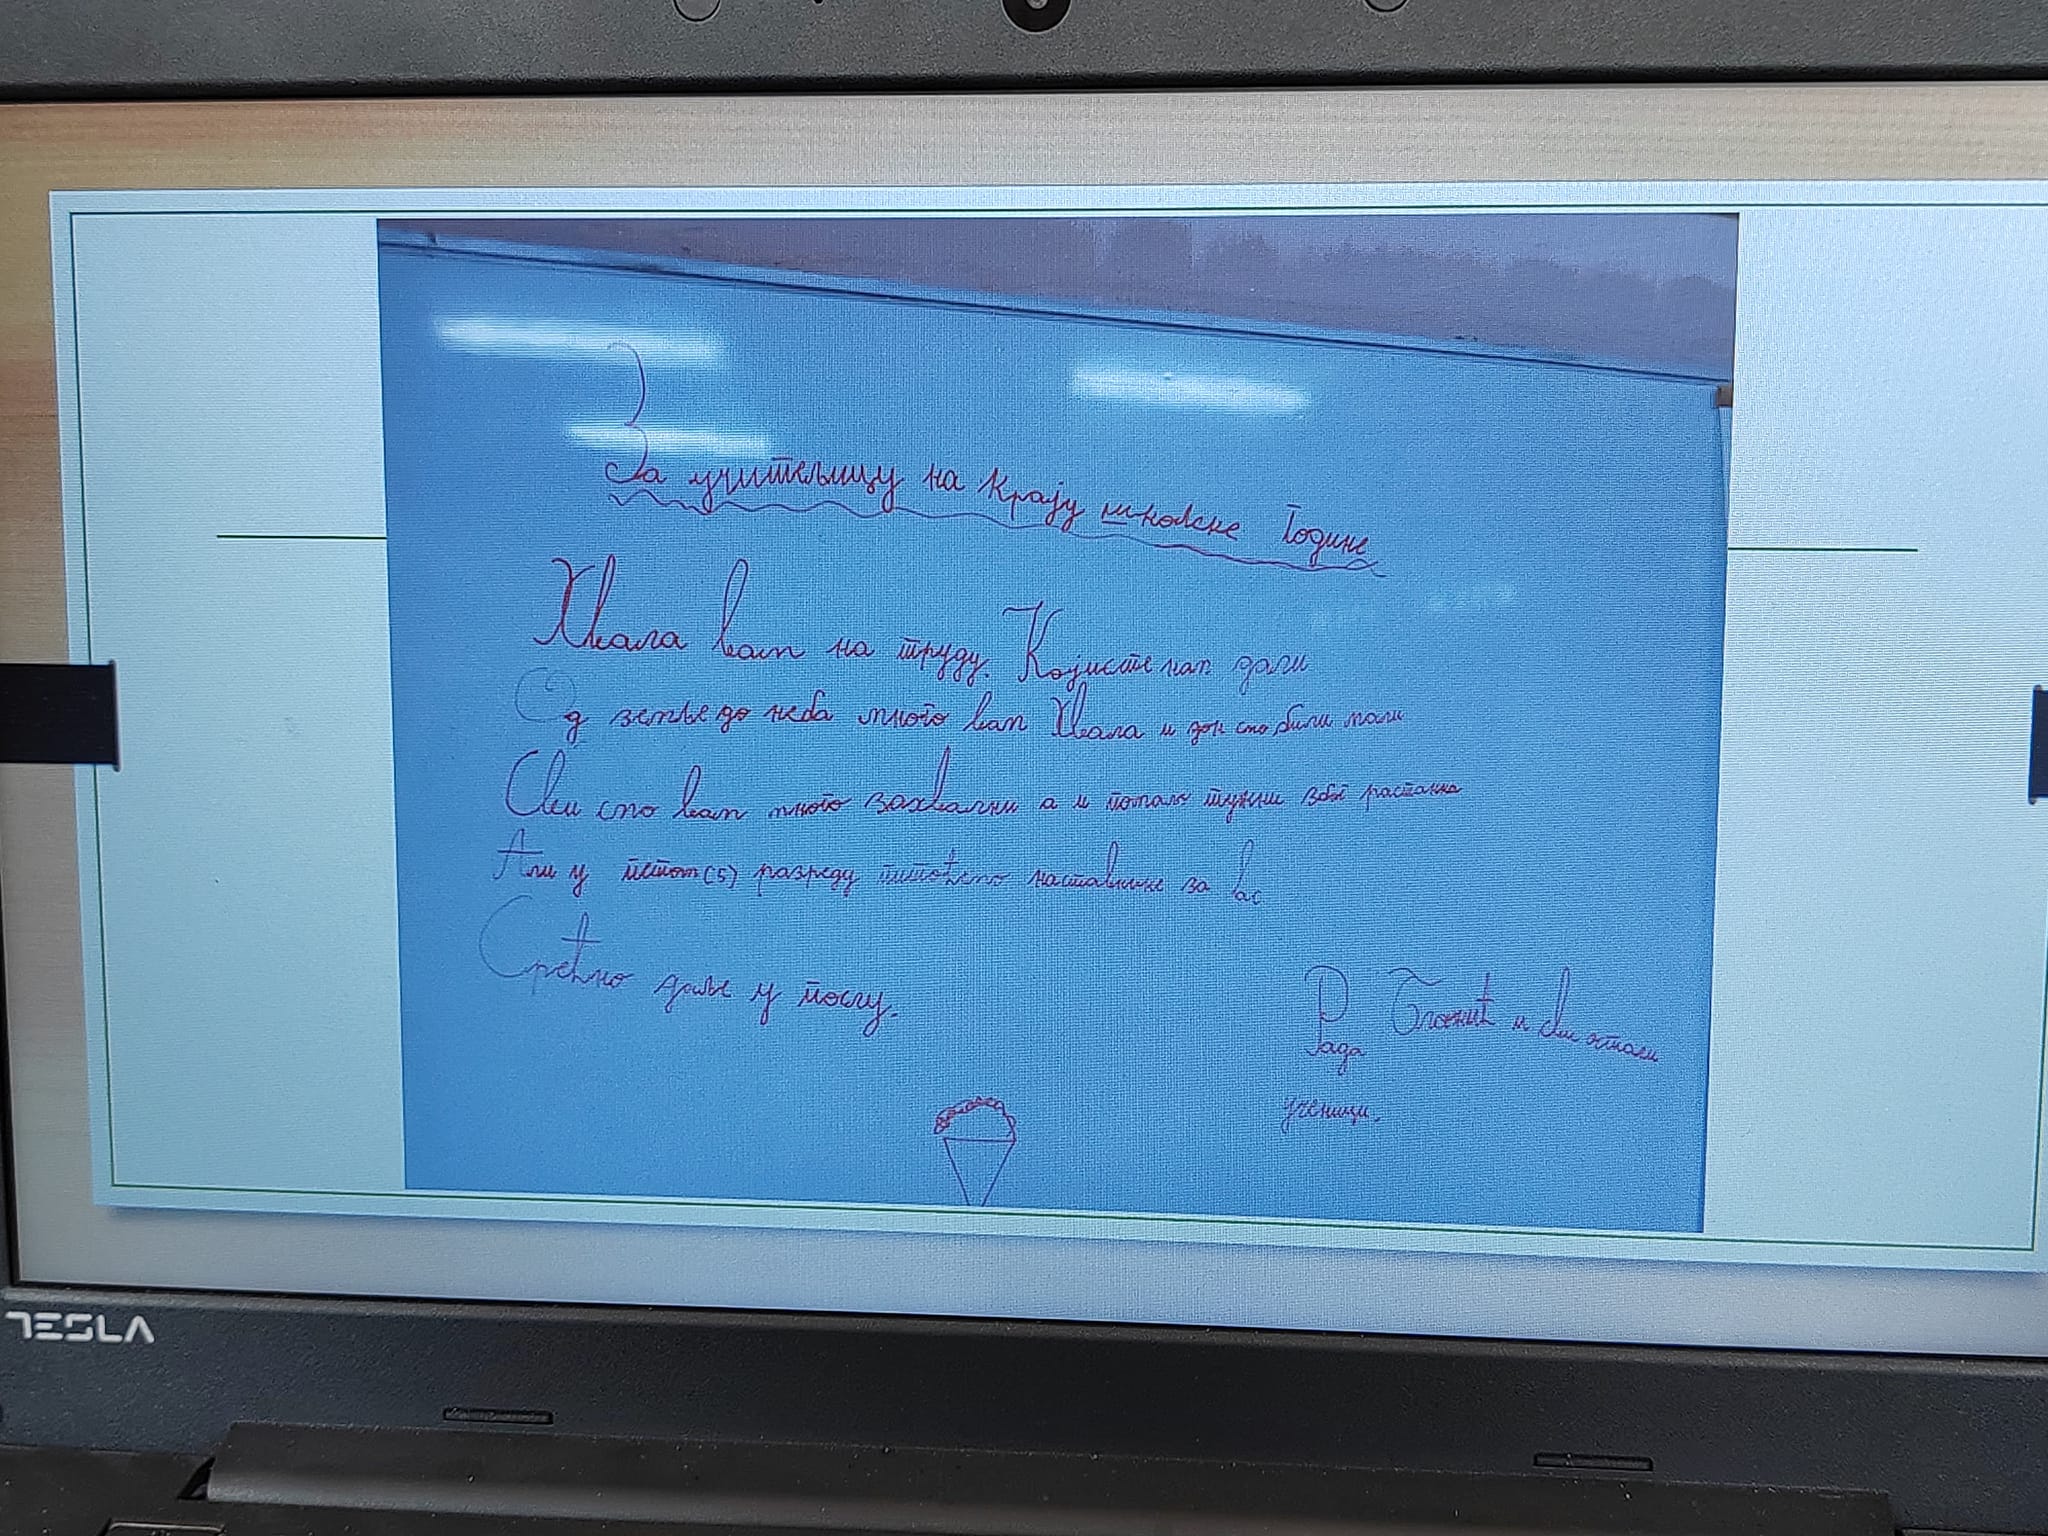 За учитељицу на крају школске године
Хвала вам на труду. Којисте нам дали
Од земље до неба много вам Хвала и док смо били мали
Сви смо вам много захвални а и помало тужни због растанка
Али у петом (5) разреду питаћемо наставнике за вас
Срећно даље у послу.
Рада и сви остали
ученици.
TESLA